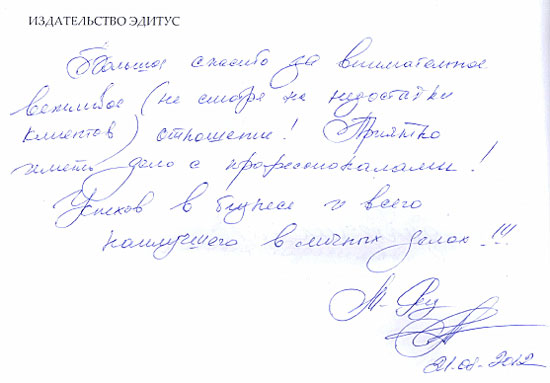 ИЗДАТЕЛЬСТВО ЭДИТУС
Большое спасибо за внимательное
вежливое (не смотря на недостатки
клиентов) отношение! Приятно
иметь дело с професионалами!
Успехов в бизнесе и всего
наилучшего в личных делах!!!
21.08.2012